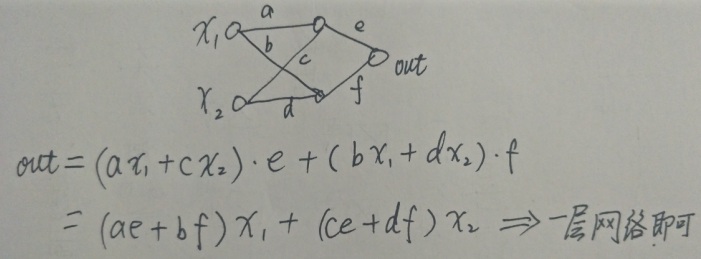 a
x₁
e
b
c
out
x₂
d
f
out = (ax₁+cx₂)·e + (bx₁+dx₂)·f
= (ae+bf)x₁ + (ce+df)x₂ ⇒ 一层网络即可